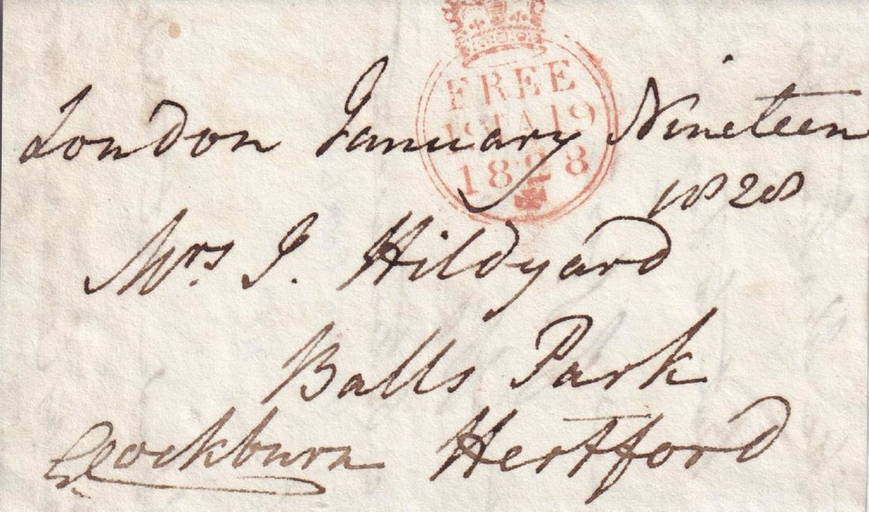 London January Nineteen
1828
Mrs. J. Hildyard
Balls Park
Hertford
GCockburn
FREE
19 JA 19
1828